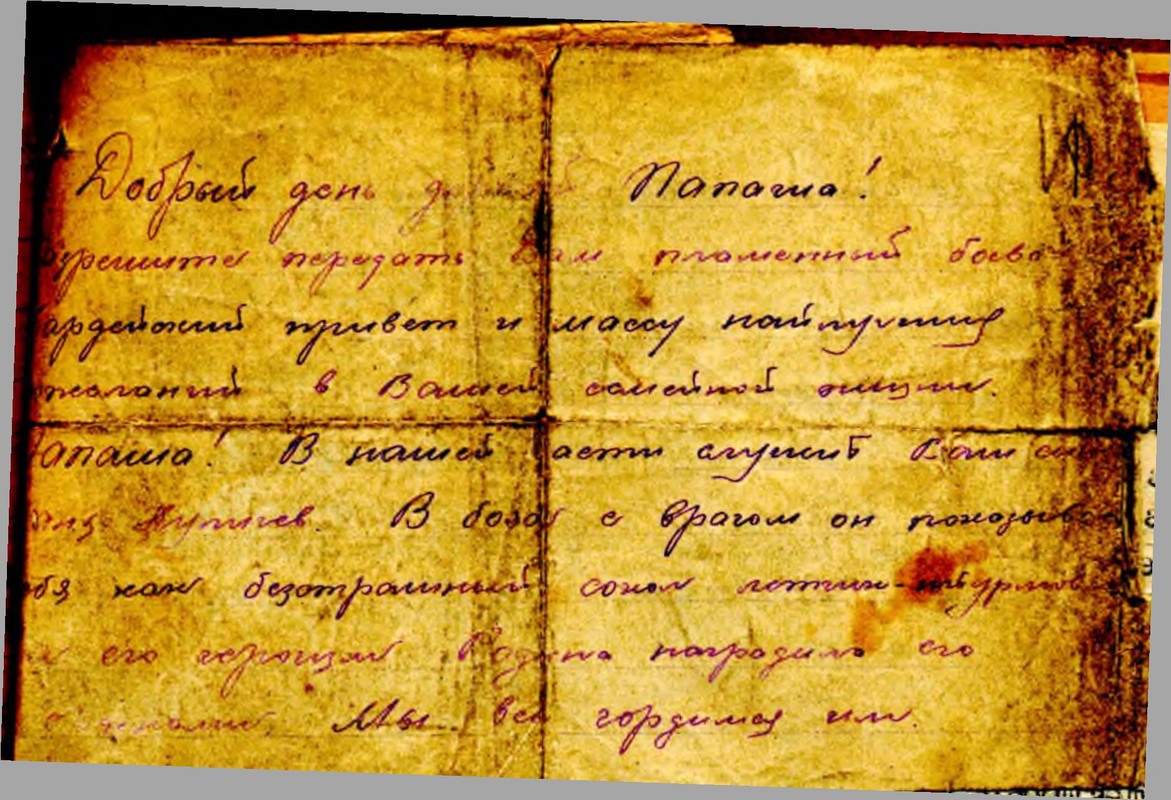 Добрый день Папаша!
зрешите передать Вам пламенный боево
ардейский привет и массу найлучших
желаний в Вашей семейной жизни.
Папаша! В нашей части служит Ваш сын
В боях с врагом он показывает
ебя как безстрашный сокол летчик-штурмовик
его героизм Родина наградила его
Мы все гордимся им.